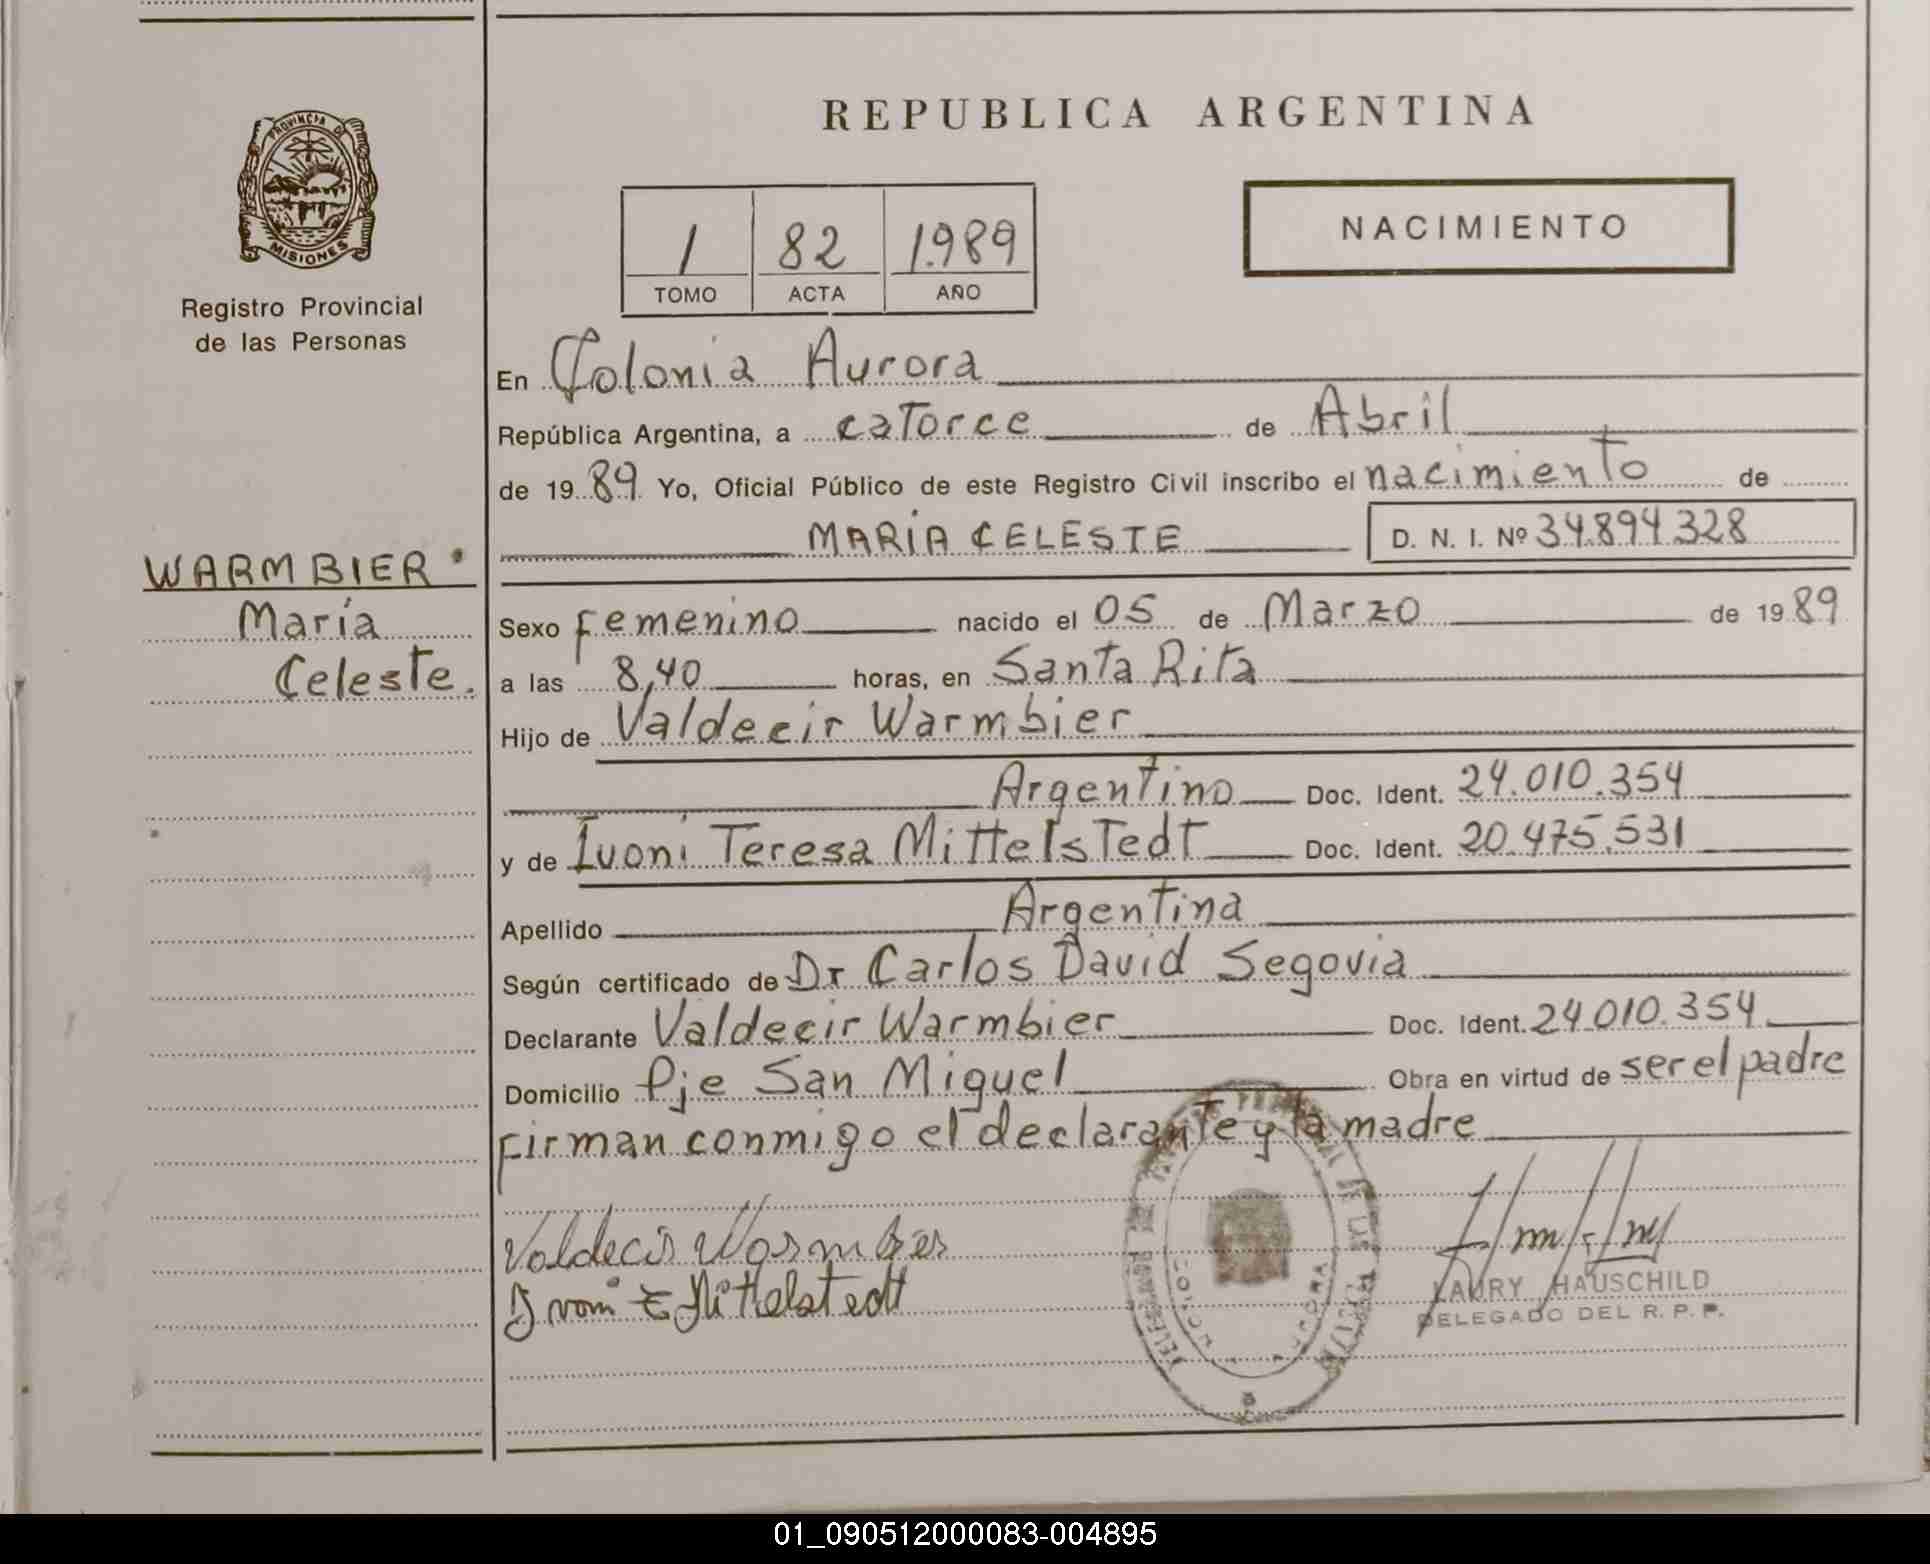 PROVINCIA DE
MISIONES
Registro Provincial
de las Personas
WARMBIER
María
Celeste.
REPUBLICA ARGENTINA
1 82 1.989
TOMO ACTA AÑO
NACIMIENTO
En Colonia Aurora
República Argentina, a catorce de Abril
de 1989 Yo, Oficial Público de este Registro Civil inscribo el nacimiento de
MARÍA CELESTE D. N. I. Nº 34.894.328
Sexo Femenino nacido el 05 de Marzo de 1989
a las 8,40 horas, en Santa Rita
Hijo de Valdecir Warmbier
Argentino Doc. Ident. 24.010.354
y de Ivoni Teresa Mittelstedt Doc. Ident. 20.475.531
Apellido Argentina
Según certificado de Dr Carlos David Segovia
Declarante Valdecir Warmbier Doc. Ident. 24.010.354
Domicilio Pje San Miguel Obra en virtud de ser el padre
Firman conmigo el declarante y la madre
Valdecir Warmbier
Ivoni T Mittelstedt
COLONIA AURORA
LAURY HAUSCHILD
DELEGADO DEL R. P. P.
01_090512000083-004895